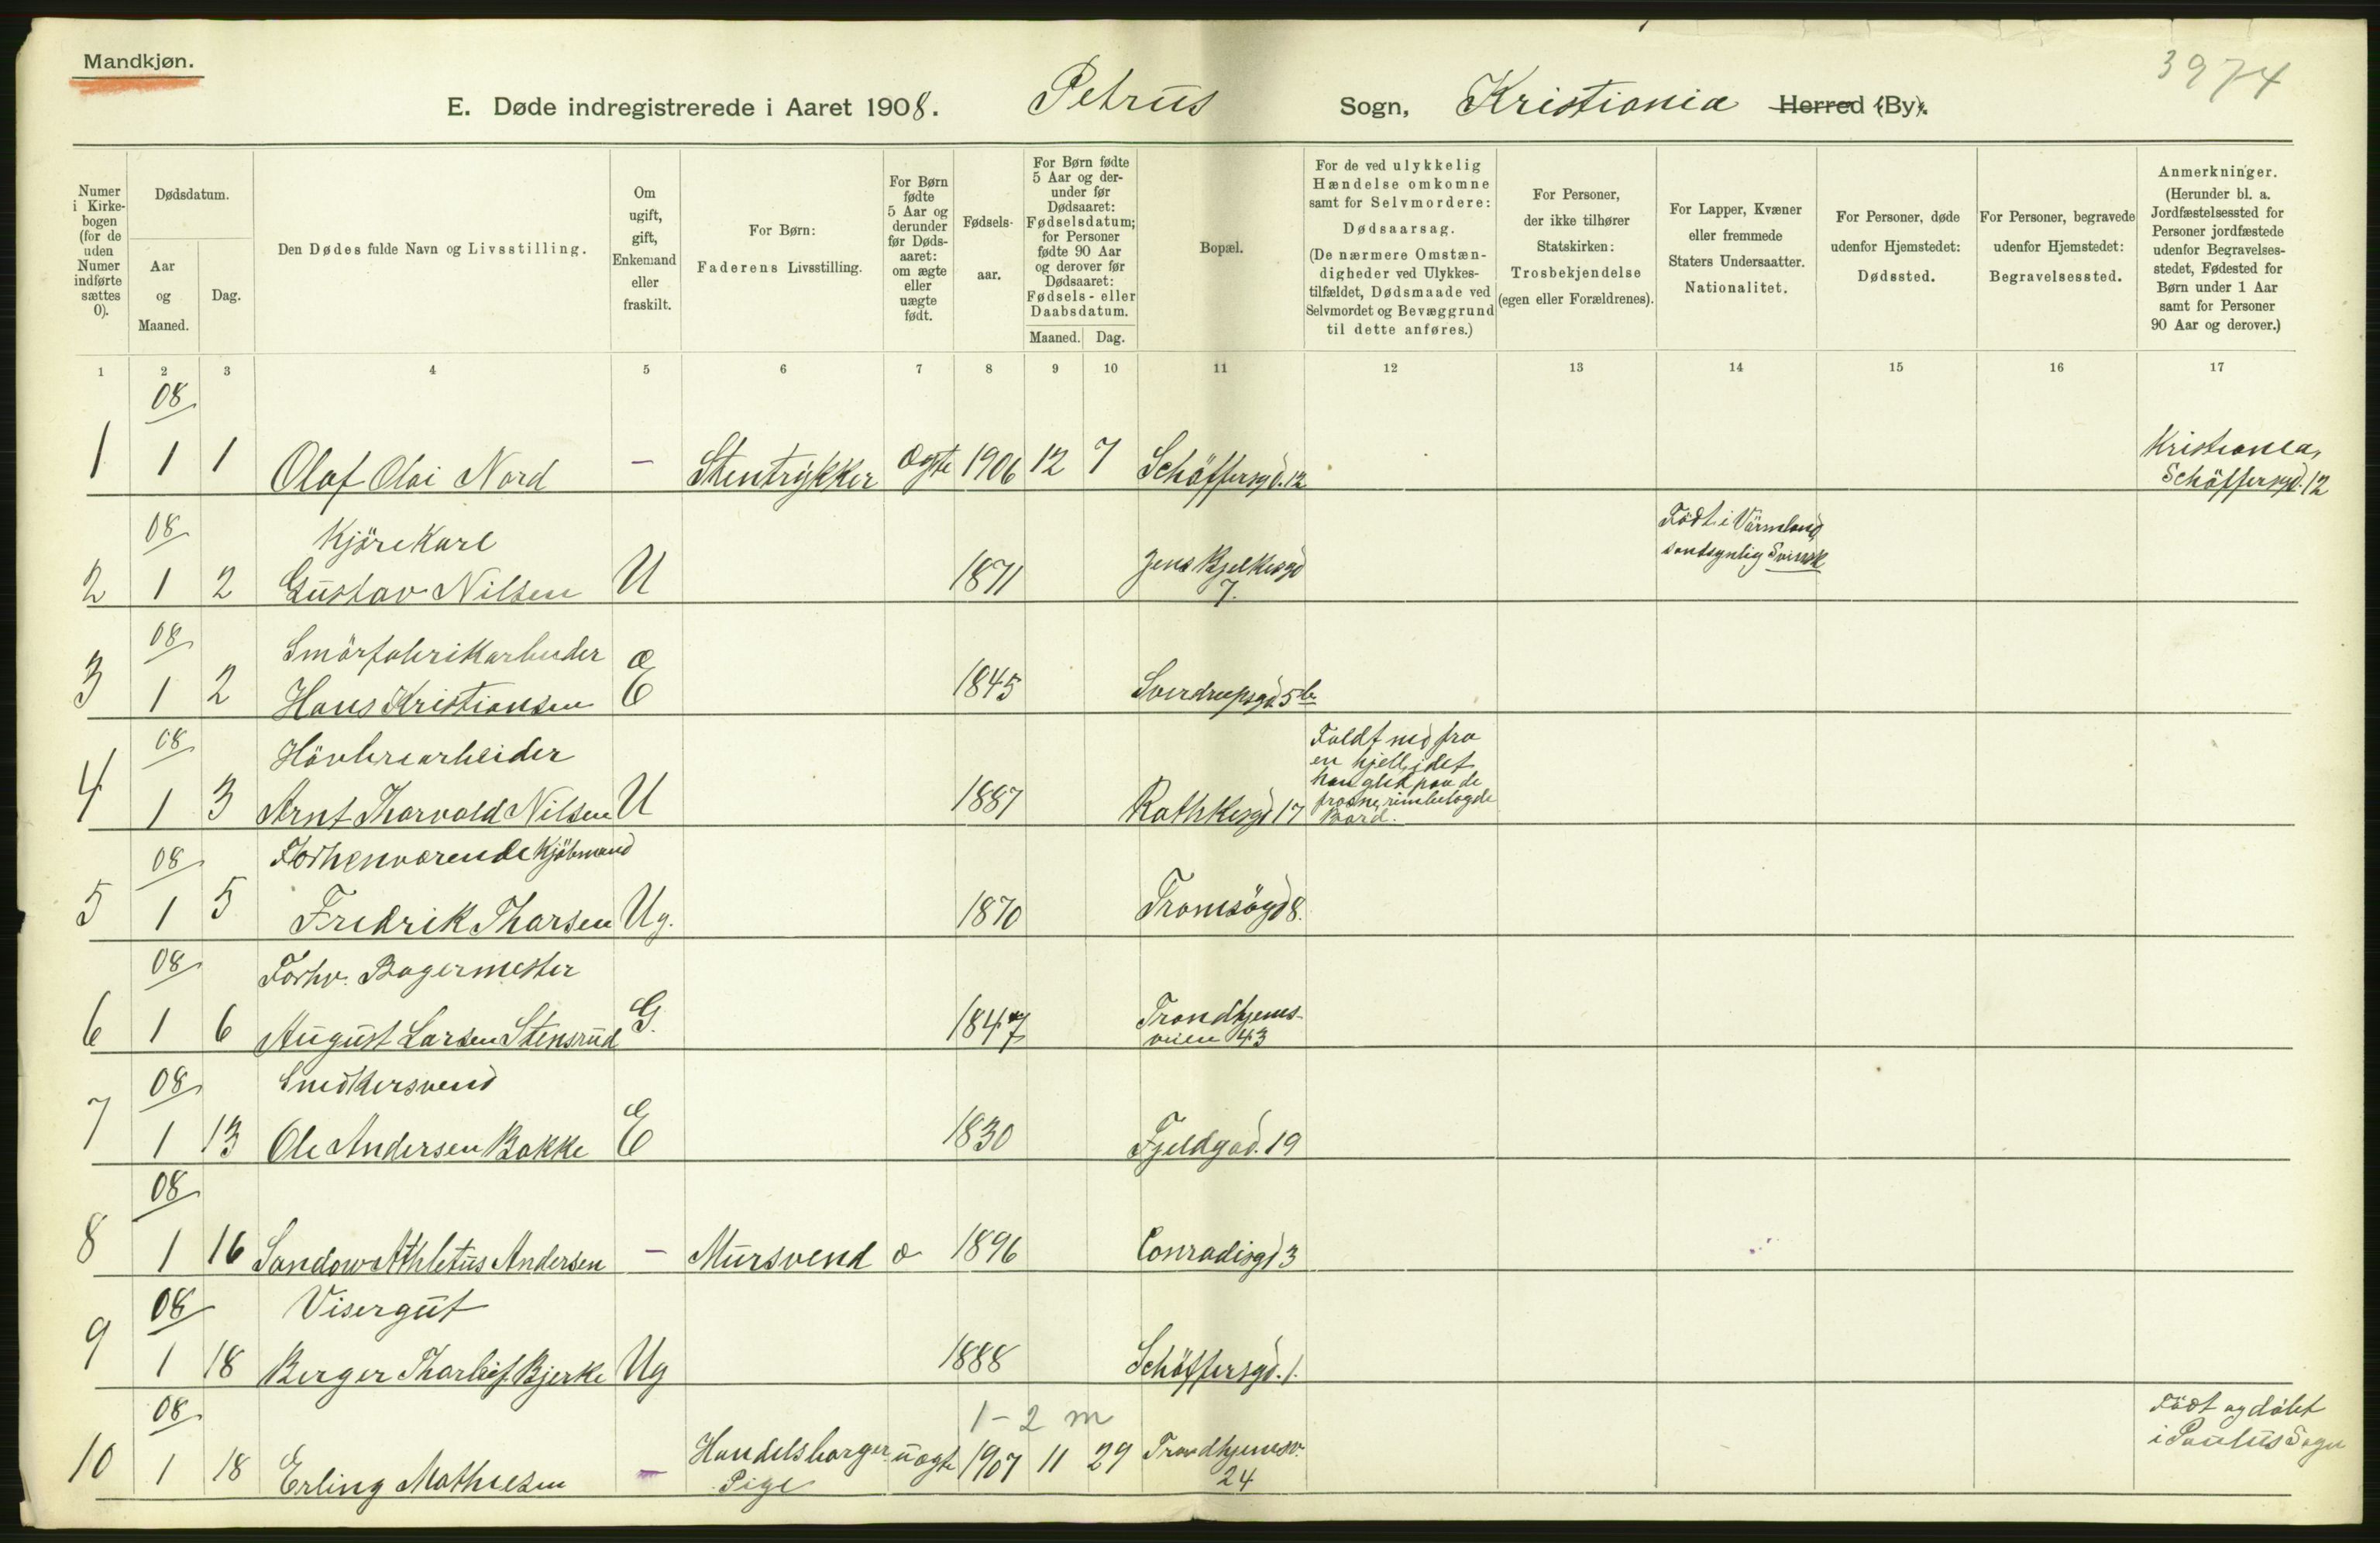 Mandkjøn.
3974
E. Døde indregistrerede i Aaret 1908. Petrus Sogn, Kristiania Herred (By).
Numer i Kirke-bogen (for de uden Numer indførte sættes 0).
Dødsdatum.
Aar og Maaned.
Dag.
Den Dødes fulde Navn og Livsstilling.
Om ugift, gift, Enkemand eller fraskilt.
For Børn: Faderens Livsstilling.
For Børn fødte 5 Aar og derunder før Døds-aaret: om ægte eller uægte født.
Fødsels-aar.
For Børn fødte 5 Aar og der-under før Dødsaaret: Fødselsdatum; for Personer fødte 90 Aar og derover før Dødsaaret: Fødsels- eller Daabsdatum.
Maaned. Dag.
Bopæl.
For de ved ulykkelig Hændelse omkomne samt for Selvmordere: Dødsaarsag. (De nærmere Omstæn-digheder ved Ulykkes-tilfældet, Dødsmaade ved Selvmordet og Bevæggrund til dette anføres.)
For Personer, der ikke tilhører Statskirken: Trosbekjendelse (egen eller Forældrenes).
For Lapper, Kvæner eller fremmede Staters Undersaatter. Nationalitet.
For Personer, døde udenfor Hjemstedet: Dødssted.
For Personer, begravede udenfor Hjemstedet: Begravelsessted.
Anmerkninger. (Herunder bl. a. Jordfæstelsessted for Personer jordfæstede udenfor Begravelses-stedet, Fødested for Børn under 1 Aar samt for Personer 90 Aar og derover.)
1 2 3 4 5 6 7 8 9 10 11 12 13 14 15 16 17
08
1 1 1 Olaf Olai Nord - Stentrykker ægte 1906 12 7 Schöffersgd. 12 Kristiania, Schöffersgd. 12
08 Kjörekarl
2 1 2 Gustav Nilsen U 1871 Jens Bjelkesgd 7. Födt i Värmland, sandsynlig Svensk
08 Smörfabrikarbeider
3 1 2 Hans Kristiansen E 1845 Sverdrupsgd 5 b
08 Hövlerearbeider
4 1 3 Arnt Thorvald Nilsen U 1887 Rathkesgd 17 Faldt ned fra en hjell, idet han gled paa de frosne, rimbelagde Bord.
08 Forhenværende Kjöbmand
5 1 5 Fredrik Thorsen Ug. 1870 Tromsögd 8.
08 Forhv. Bagermester
6 1 6 August Larsen Stensrud G. 1847 Trondhjems-veien 43
08 Snedkersvend
7 1 13 Ole Andersen Bakke E 1830 Fjeldgad. 19
08
8 1 16 Sandow Athletus Andersen - Mursvend æ 1896 Conradisgd 3
08 Visergut
9 1 18 Berger Thorleif Bjerke Ug 1888 Schöffersgd. 1.
08 1-2 m
10 1 18 Erling Mathiesen - Handelsborger Pige uægte 1907 11 29 Trondhjemsv. 24 Födt og döbt i Paulus Sogn